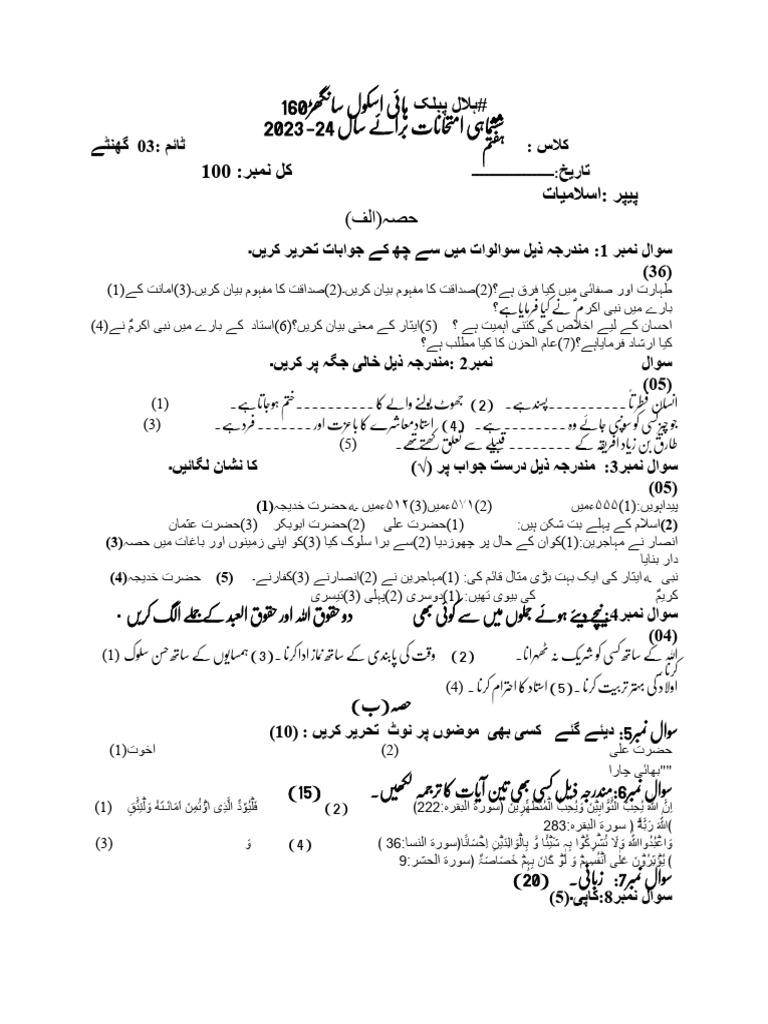 #ہلال پبلک ہائی اسکول سانگھڑ160
ششماہی امتحانات برائے سال 24-2023
کلاس : ہفتم ٹائم :03 گھنٹے
تاریخ:ـــــــــــــــــ کل نمبر: 100
پیپر :اسلامیات
حصہ(الف)
سوال نمبر 1: مندرجہ ذیل سوالوات میں سے چھ کے جوابات تحریر کریں۔
(36)
طہارت اور صفائی میں کیا فرق ہے؟(2)صداقت کا مفہوم بیان کریں۔(2)صداقت کا مفہوم بیان کریں۔(3)امانت کے(1)
بارے میں نبی اکرمؐ نے کیا فرمایاہے؟
احسان کے لیے اخلاص کی کتنی اہمیت ہے ؟ (5)ایثار کے معنی بیان کریں؟(6)استاد کے بارے میں نبی اکرمؐ نے(4)
کیا ارشاد فرمایاہے؟(7)عام الحزن کا کیا مطلب ہے؟
سوال نمبر2 :مندرجہ ذیل خالی جگہ پر کریں۔
(05)
انسان فطرتاً ----------پسند ہے۔ (2) جھوٹ بولنے والے کا ----------ختم ہوجاتا ہے۔ (1)
جو چیز کسی کو سونپی جائے وہ -------- ہے۔ (4) استاد معاشرے کا باعزت اور ------- فرد ہے۔ (3)
طارق بن زیاد افریقہ کے -------- قبیلے سے تعلق رکھتے تھے۔ (5)
سوال نمبر3: مندرجہ ذیل درست جواب پر (√) کا نشان لگائیں۔
(05)
پیداہویں:(1)۵۵۵ءمیں (2)۵۷۱ءمیں(3)۵۱۲ءمیں ۔ہ حضرت خدیجہ(1)
(2)اسلام کے پہلے بت شکن ہیں: (1)حضرت علی (2)حضرت ابوبکر (3)حضرت عثمان
انصار نے مہاجرین:(1)کوان کے حال پر چھوڑدیا (2)سے برا سلوک کیا (3)کو اپنی زمینوں اور باغات میں حصہ(3)
دار بنایا
نبی ہ ایثار کی ایک بہت بڑی مثال قائم کی: (1)مہاجرین نے (2)انصارنے (3)کفارنے۔ (5) حضرت خدیجہ(4)
کریمؐ کی بیوی تھیں: (1)دوسری (2)پہلی (3)تیسری
سوال نمبر4:نیچے دیئے ہوئے جملوں میں سے کوئی بھی دو حقوق اللہ اور حقوق العبد کے جملے الگ کریں ۔
(04)
اللہ کے ساتھ کسی کو شریک نہ ٹھہرانا۔ (2) وقت کی پابندی کے ساتھ نماز ادا کرنا ۔(3) ہمسایوں کے ساتھ حسن سلوک (1)
کرنا ۔
اولاد کی بہتر تربیت کرنا ۔(5) استاد کا احترام کرنا ۔ (4)
حصہ(ب)
سوال نمبر5: دیئے گئے کسی بھی موضوں پر نوٹ تحریر کریں : (10)
حضرت علی (2) اخوت(1)
""بھائی چارا
سوال نمبر6:مندرجہ ذیل کسی بھی تین آیات کا ترجمہ لکھیں۔ (15)
اِنَّ اللّٰہَ یُحِبُّ التَّوَّابِیْنَ وَیُحِبُّ الْمُتَطَھِّرِیْنَ (سورۃ البقرہ:222) (2) فَلْیُؤَدِّ الَّذِی اؤْتُمِنَ اَمَانَتَهٗ وَلْیَتَّقِ (1)
)اللّٰہَ رَبَّهٗ ( سورۃ البقرہ:283
وَاعْبُدُواللّٰہَ وَلَا تُشْرِکُوْا بِہٖ شَیْئًا وَّ بِالْوَالِدَیْنِ اِحْسَانًا(سورۃ النسا:36 ) (4) وَ (3)
) یُؤْثِرُوْنَ عَلٰی اَنْفُسِہِمْ وَ لَوْ کَانَ بِہِمْ خَصَاصَۃٌ (سورۃ الحشر:9
سوال نمبر7: زبانی۔ (20)
سوال نمبر8:کاپی۔(5)